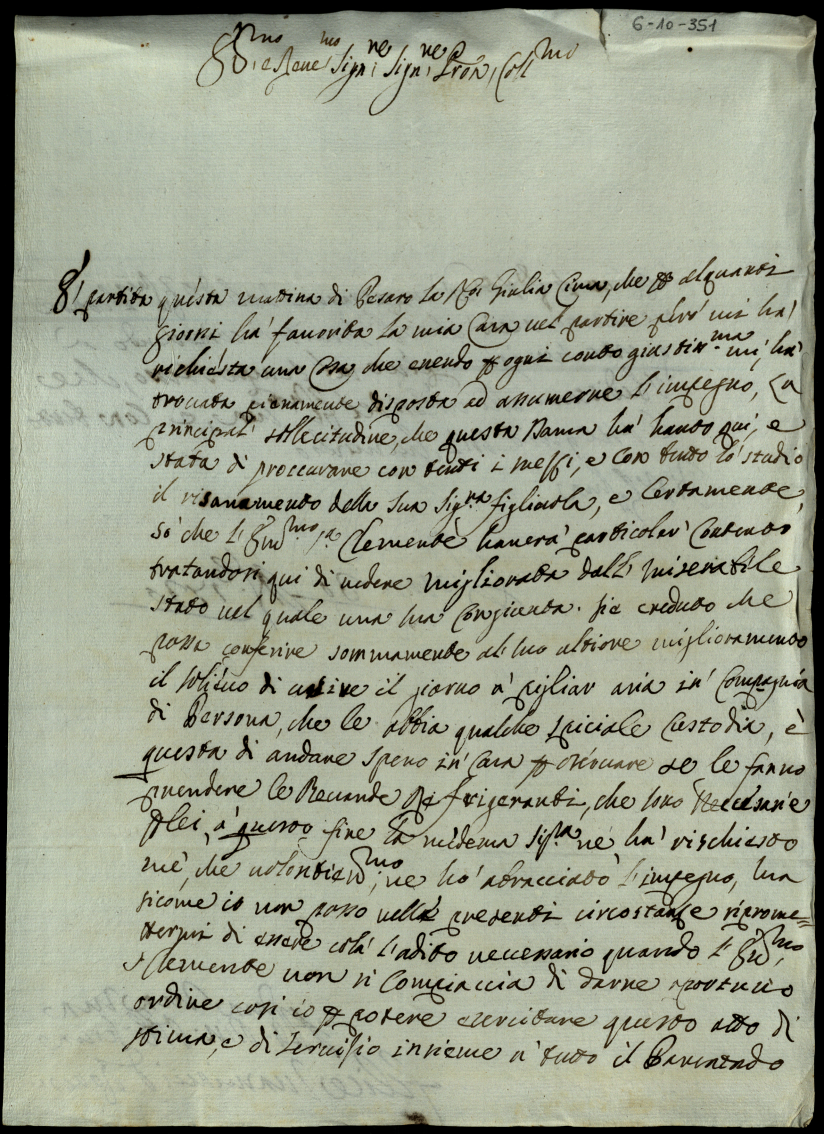 6-10-351
Ill.mo e Reve.mo Sig.re Sig.re Pron. Coll.mo
E' partita questa mattina di Pesaro la Giulia Cima, che p alquanti
giorni há favorita la mia Casa nel partire mi há
richiésta una cosa che essendo p ogni conto giustis.ma mi há
trovata pienamente disposta ad assumerne l'impegno, La
principal' sollecitudine, che questa Dama há hauto qui, e
stata di proccurare con tutti i messi, e con tutto ló studio
il risanamento della sua Sig.ra figliuola, e Certamente,
só che l'Ill.mo Clemente hauerá particolar' Contento
tratandosi qui di uedere migliorata dall' miserabile
stato nel quale una sua Congionta. Sie creduto che
possa conferire sommamente al suo ultiore miglioramento
il solieuo di uscire il giorno á pigliar aria in' Compagnia
di Persona, che le abbia qualche spiciale Custodia, é
questa di andare spero in' Casa p osseruare se le fanno
prendere le Beuande Refrigeranti, che sono Necesarie
p lei, á questo fine la medema Sig.ra ne há rischiesto
mé, che uolontier.mo ne hó abracciato l'impegno, ma
sicome io non posso nellé presenti circostanse riprome=
ttermi di essere colá l'adito necessario quando l'Ill.mo
Clemente non si Compiaccia di darne oportuno
ordine cosi io p potere esercitare questo atto di
stima, e di seruisio insieme á tutto il Parentado